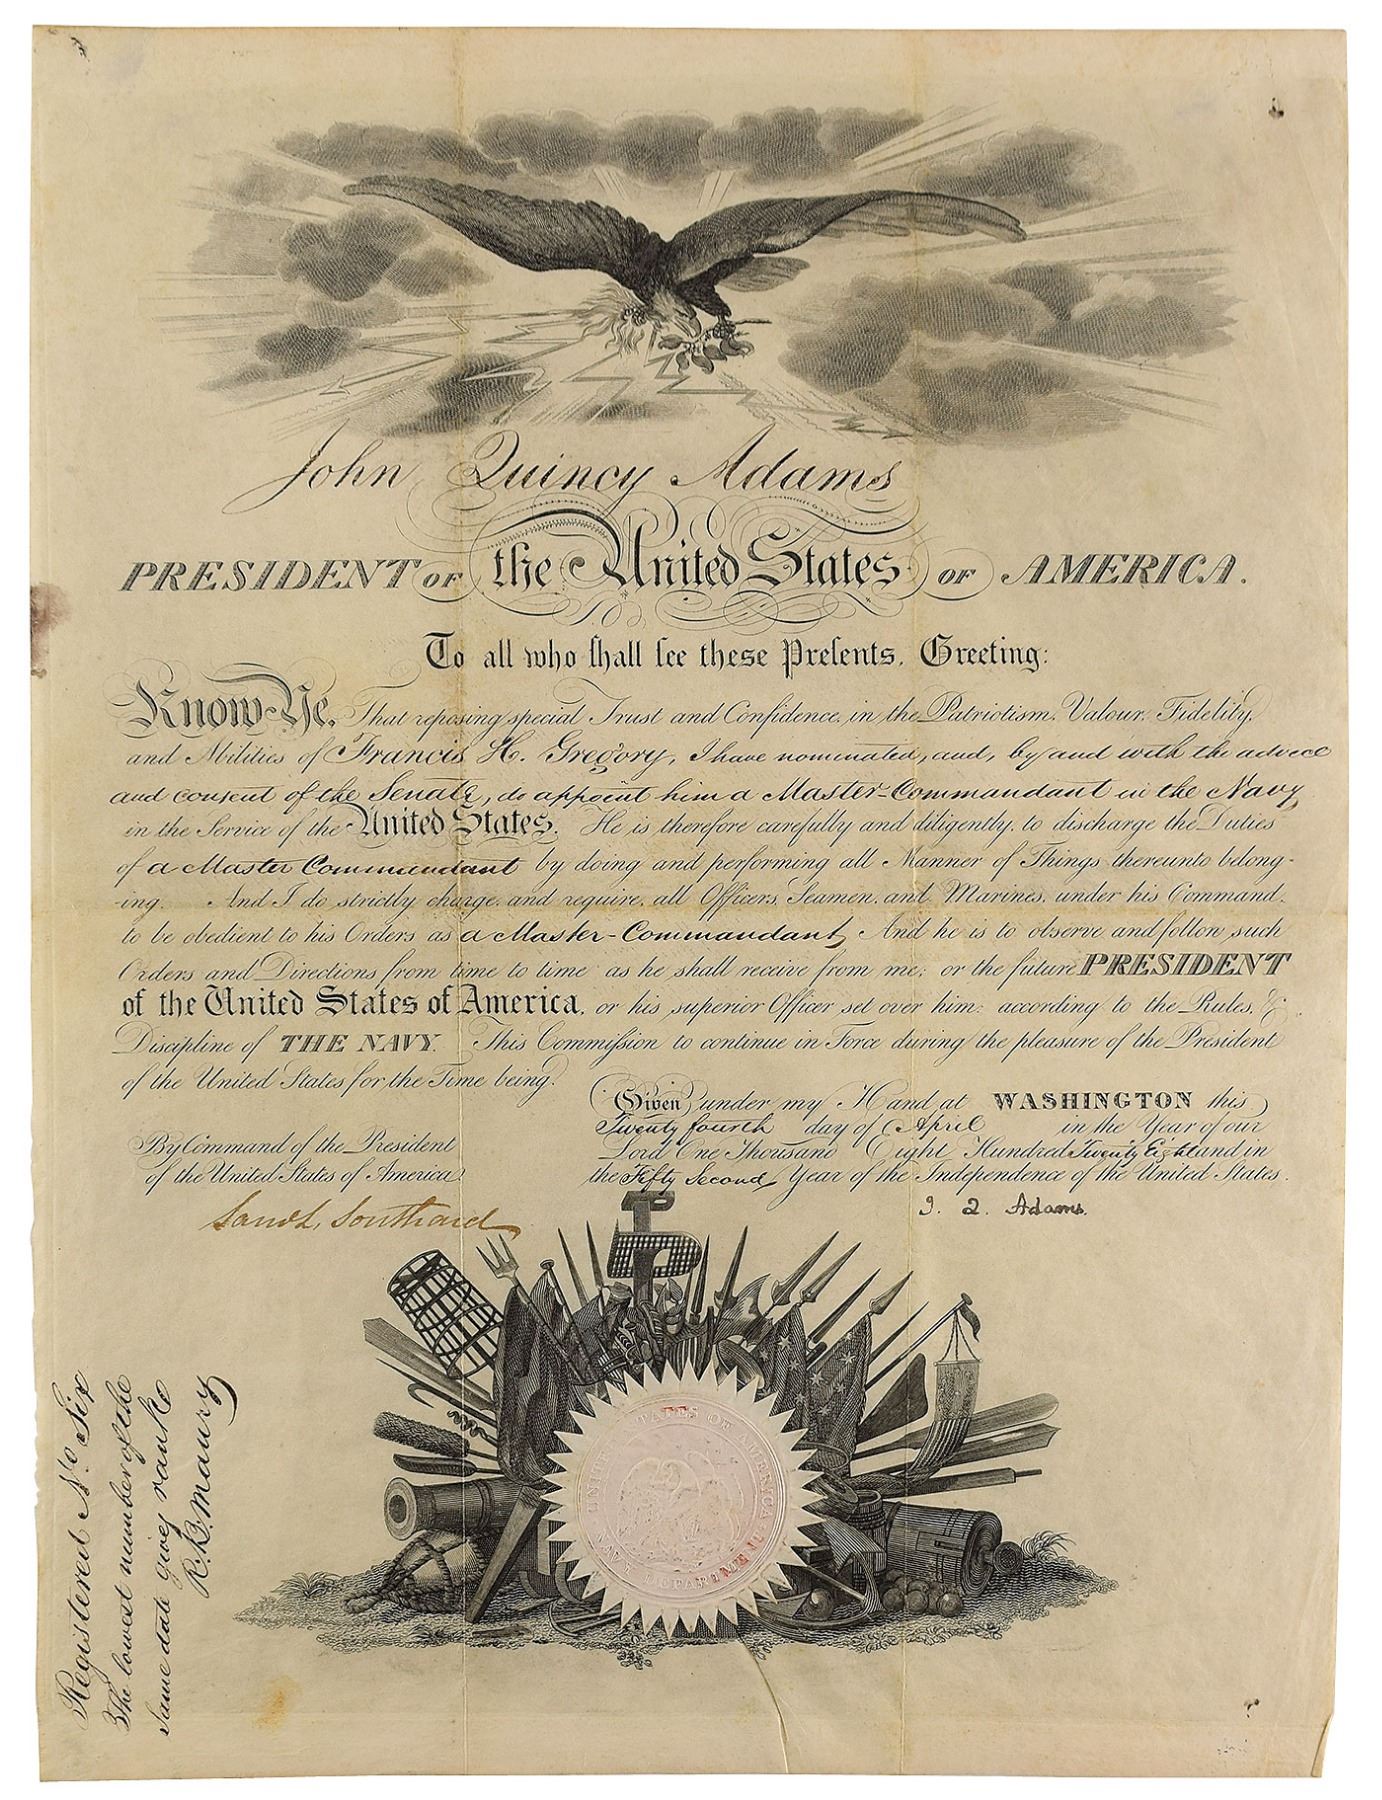 John Quincy Adams
PRESIDENT OF the United States OF AMERICA.
To all who shall see these Presents, Greeting:
Know Ye, That reposing special Trust and Confidence, in the Patriotism, Valour, Fidelity,
and Abilities of Francis H. Gregory, I have nominated, and, by and with the advice
and consent of the Senate, do appoint him a Master-Commandant in the Navy
in the Service of the United States. He is therefore carefully and diligently, to discharge the Duties
of a Master Commandant by doing and performing all Manner of Things thereunto belong-
-ing. And I do strictly charge, and require, all Officers, Seamen, and Marines, under his Command,
to be obedient to his Orders as a Master-Commandant, And he is to observe and follow such
Orders and Directions from time to time as he shall receive from me; or the future PRESIDENT
of the United States of America, or his superior Officer set over him: according to the Rules, &
Discipline of THE NAVY. This Commission to continue in Force during the pleasure of the President
of the United States for the Time being.
Given under my Hand at WASHINGTON this
Twenty fourth day of April in the Year of our
Lord One Thousand Eight Hundred Twenty Eight and in
the Fifty Second, Year of the Independence of the United States.
By Command of the President
of the United States of America.
Saml L. Southard
J. Q. Adams.
UNITED STATES OF AMERICA
NAVY DEPARTMENT
Registered No Six
The lowest number of the
same date gives rank
R. B. Maury